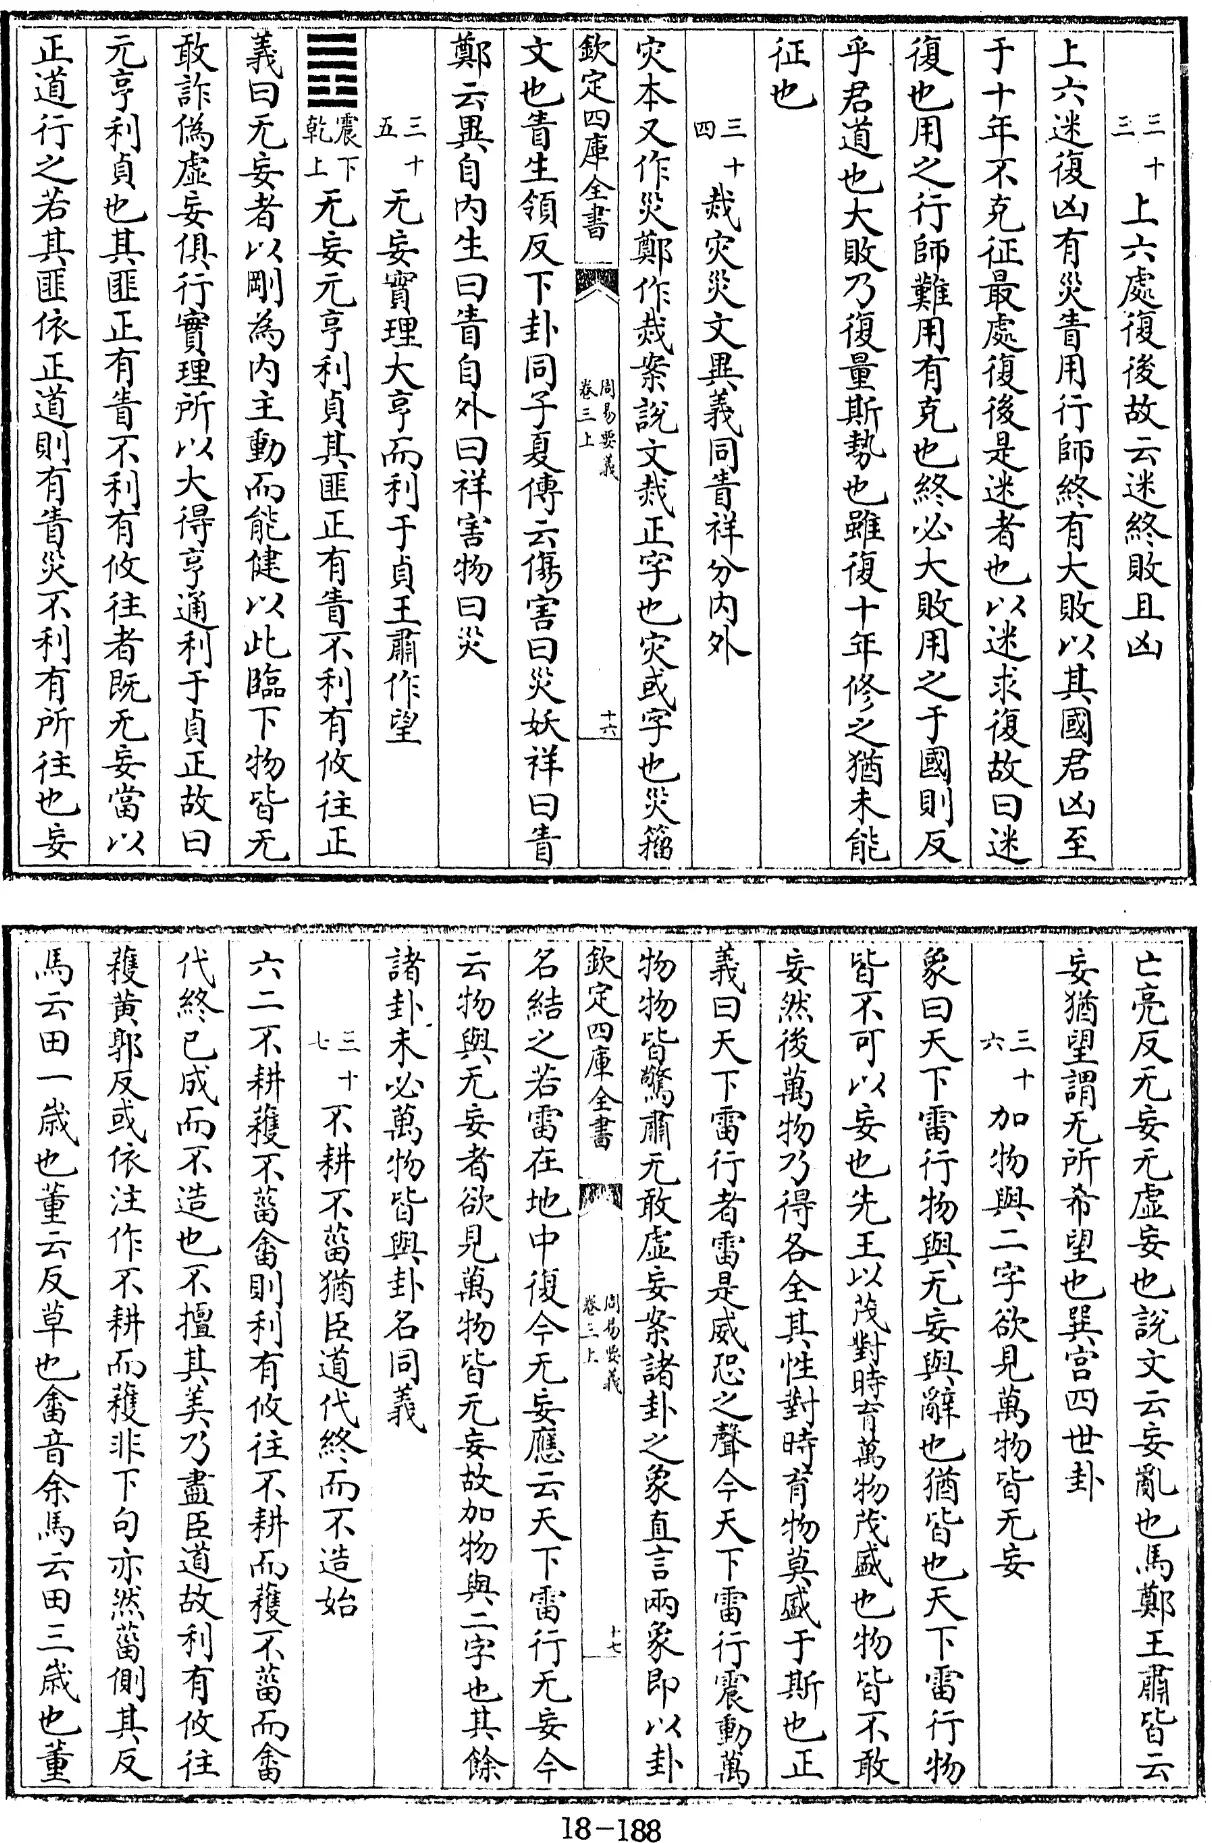 三十三　上六處復後故云迷終敗且凶
上六迷復凶有災眚用行師終有大敗以其國君凶至
于十年不克征最處復後是迷者也以迷求復故曰迷
復也用之行師難用有克也終必大敗用之于國則反
乎君道也大敗乃復量斯勢也雖復十年修之猶未能
征也
三十四　烖灾災文異義同眚祥分內外
灾本又作災鄭作烖案說文烖正字也灾或字也災籀
欽定四庫全書　周易要義　卷三上　十六
文也眚生領反下卦同子夏傳云傷害曰災妖祥曰眚
鄭云異自內生曰眚自外曰祥害物曰災
三十五　无妄實理大亨而利于貞王肅作望
䷘震下乾上无妄元亨利貞其匪正有眚不利有攸往正
義曰无妄者以剛為內主動而能健以此臨下物皆无
敢詐偽虛妄俱行實理所以大得亨通利于貞正故曰
元亨利貞也其匪正有眚不利有攸往者既无妄當以
正道行之若其匪依正道則有眚災不利有所往也妄
亡亮反无妄无虛妄也說文云妄亂也馬鄭王肅皆云
妄猶望謂无所希望也巽宮四世卦
三十六　加物與二字欲見萬物皆无妄
象曰天下雷行物與无妄與辭也猶皆也天下雷行物
皆不可以妄也先王以茂對時育萬物茂盛也物皆不敢
妄然後萬物乃得各全其性對時育物莫盛于斯也正
義曰天下雷行者雷是威恐之聲今天下雷行震動萬
物物皆驚肅无敢虛妄案諸卦之象直言兩象即以卦
欽定四庫全書　周易要義　卷三上　十七
名結之若雷在地中復今无妄應云天下雷行无妄今
云物與无妄者欲見萬物皆无妄故加物與二字也其餘
諸卦未必萬物皆與卦名同義
三十七　不耕不菑猶臣道代終而不造始
六二不耕穫不菑畬則利有攸往不耕而穫不菑而畬
代終已成而不造也不擅其美乃盡臣道故利有攸往
穫黃郭反或依注作不耕而穫非下句亦然菑側其反
馬云田一歲也董云反草也畬音余馬云田三歲也董
18-188